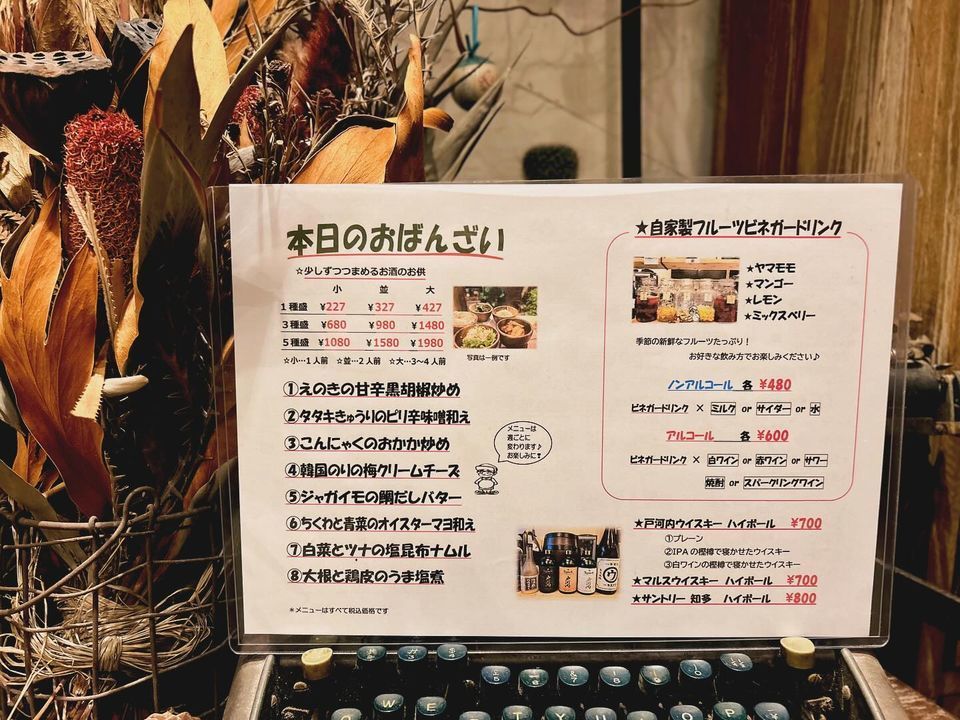 本日のおばんざい
☆少しずつつまめるお酒のお供
小 並 大
1種盛 ¥227 ¥327 ¥427
3種盛 ¥680 ¥980 ¥1480
5種盛 ¥1080 ¥1580 ¥1980
☆小…1人前 ☆並…2人前 ☆大…3~4人前
写真は一例です
①えのきの甘辛黒胡椒炒め
②タタキきゅうりのピリ辛味噌和え
③こんにゃくのおかか炒め
④韓国のりの梅クリームチーズ
⑤ジャガイモの鯛だしバター
⑥ちくわと青菜のオイスターマヨ和え
⑦白菜とツナの塩昆布ナムル
⑧大根と鶏皮のうま塩煮
メニューは
週ごとに
変わります♪
お楽しみに!
*メニューはすべて税込価格です
★自家製フルーツビネガードリンク
★ヤマモモ
★マンゴー
★レモン
★ミックスベリー
季節の新鮮なフルーツたっぷり!
お好きな飲み方でお楽しみください♪
ノンアルコール 各 ¥480
ビネガードリンク × ミルク or サイダー or 水
アルコール 各 ¥600
ビネガードリンク × 白ワイン or 赤ワイン or サワー
焼酎 or スパークリングワイン
★戸河内ウイスキー ハイボール ¥700
①プレーン
②IPAの樽で寝かせたウイスキー
③白ワインの樽で寝かせたウイスキー
★マルスウイスキー ハイボール ¥700
★サントリー 知多 ハイボール ¥800
W E T Y U O P